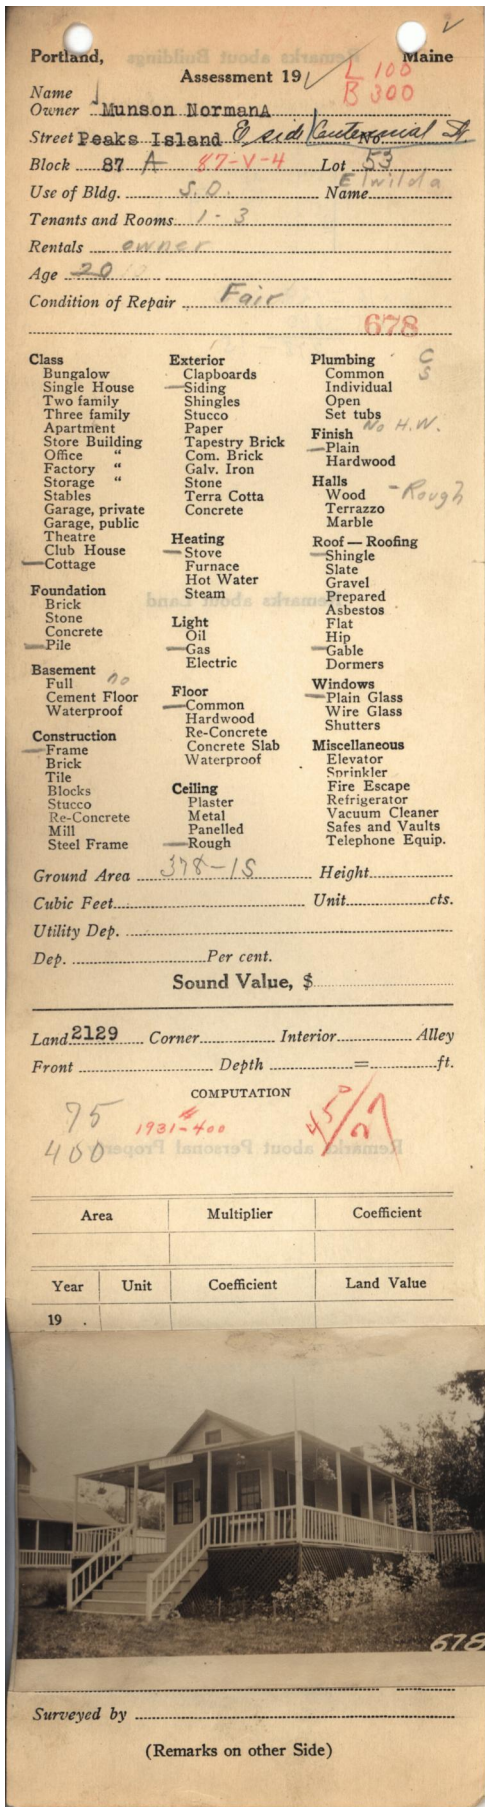 Portland, Maine
Assessment 19
L 100
B 300
Name
Owner Munson NormanA
Street Peaks Island E side Centennial St No.
Block 87 A 87-V-4 Lot 53
Use of Bldg. S.D. Name Elwilda
Tenants and Rooms 1-3
Rentals owner
Age 20
Condition of Repair Fair
678
Class
Bungalow
Single House
Two family
Three family
Apartment
Store Building
Office "
Factory "
Storage "
Stables
Garage, private
Garage, public
Theatre
Club House
Cottage
Foundation
Brick
Stone
Concrete
Pile
Basement
Full no
Cement Floor
Waterproof
Construction
Frame
Brick
Tile
Blocks
Stucco
Re-Concrete
Mill
Steel Frame
Exterior
Clapboards
Siding
Shingles
Stucco
Paper
Tapestry Brick
Com. Brick
Galv. Iron
Stone
Terra Cotta
Concrete
Heating
Stove
Furnace
Hot Water
Steam
Light
Oil
Gas
Electric
Floor
Common
Hardwood
Re-Concrete
Concrete Slab
Waterproof
Ceiling
Plaster
Metal
Panelled
Rough
Plumbing C
Common S
Individual
Open
Set tubs
No H.W.
Finish
Plain
Hardwood
Halls
Wood - Rough
Terrazzo
Marble
Roof — Roofing
Shingle
Slate
Gravel
Prepared
Asbestos
Flat
Hip
Gable
Dormers
Windows
Plain Glass
Wire Glass
Shutters
Miscellaneous
Elevator
Sprinkler
Fire Escape
Refrigerator
Vacuum Cleaner
Safes and Vaults
Telephone Equip.
Ground Area 378-1S Height
Cubic Feet Unit cts.
Utility Dep.
Dep. Per cent.
Sound Value, $
Land 2129 Corner Interior Alley
Front Depth = ft.
COMPUTATION
75
400
1931-400
Area Multiplier Coefficient
Year Unit Coefficient Land Value
19 .
678
Surveyed by
(Remarks on other Side)